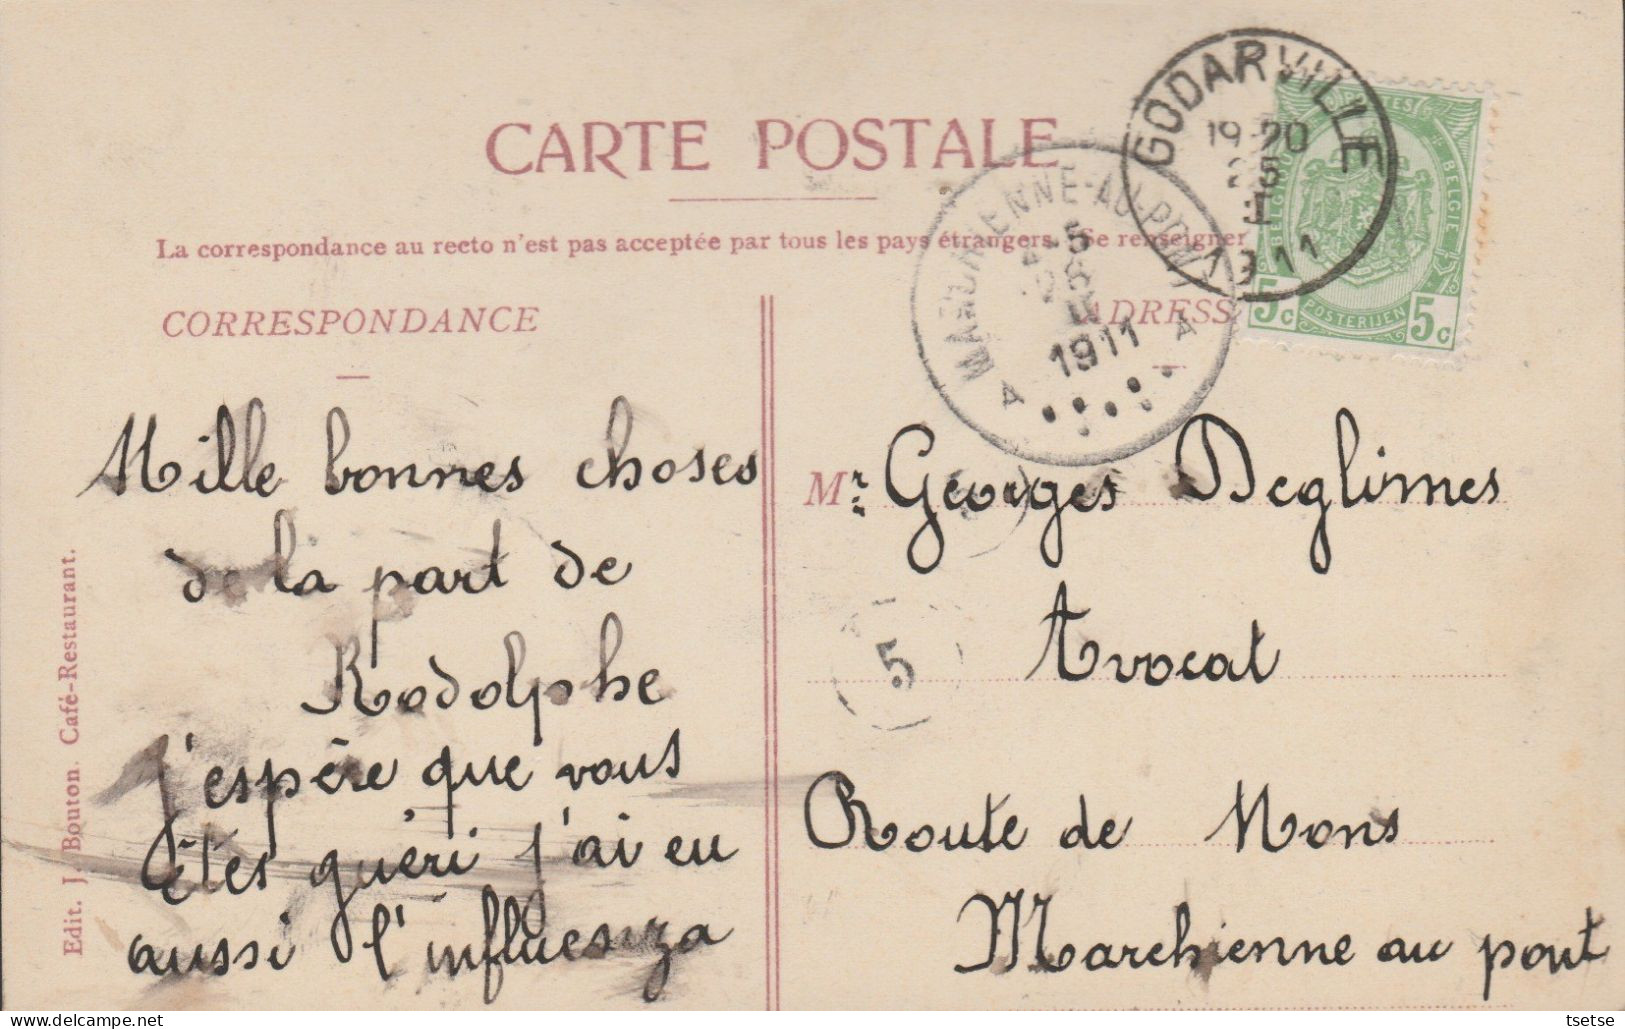 CARTE POSTALE
La correspondance au recto n'est pas acceptée par tous les pays étrangers. Se renseigner
CORRESPONDANCE
ADRESSE
GODARVILLE
19-20
1911
MARCHIENNE-AU-PONT
5
1911
A A
BELGIQUE
BELGIË
POSTERIJEN
5c 5c
Mille bonnes choses
de la part de
Rodolphe
J'espère que vous
êtes guéri j'ai eu
aussi l'influenza
Mr. Georges Deglimes
Avocat
Route de Mons
Marchienne au pont
5
Edit. J. Bouton. Café-Restaurant.
tsetse